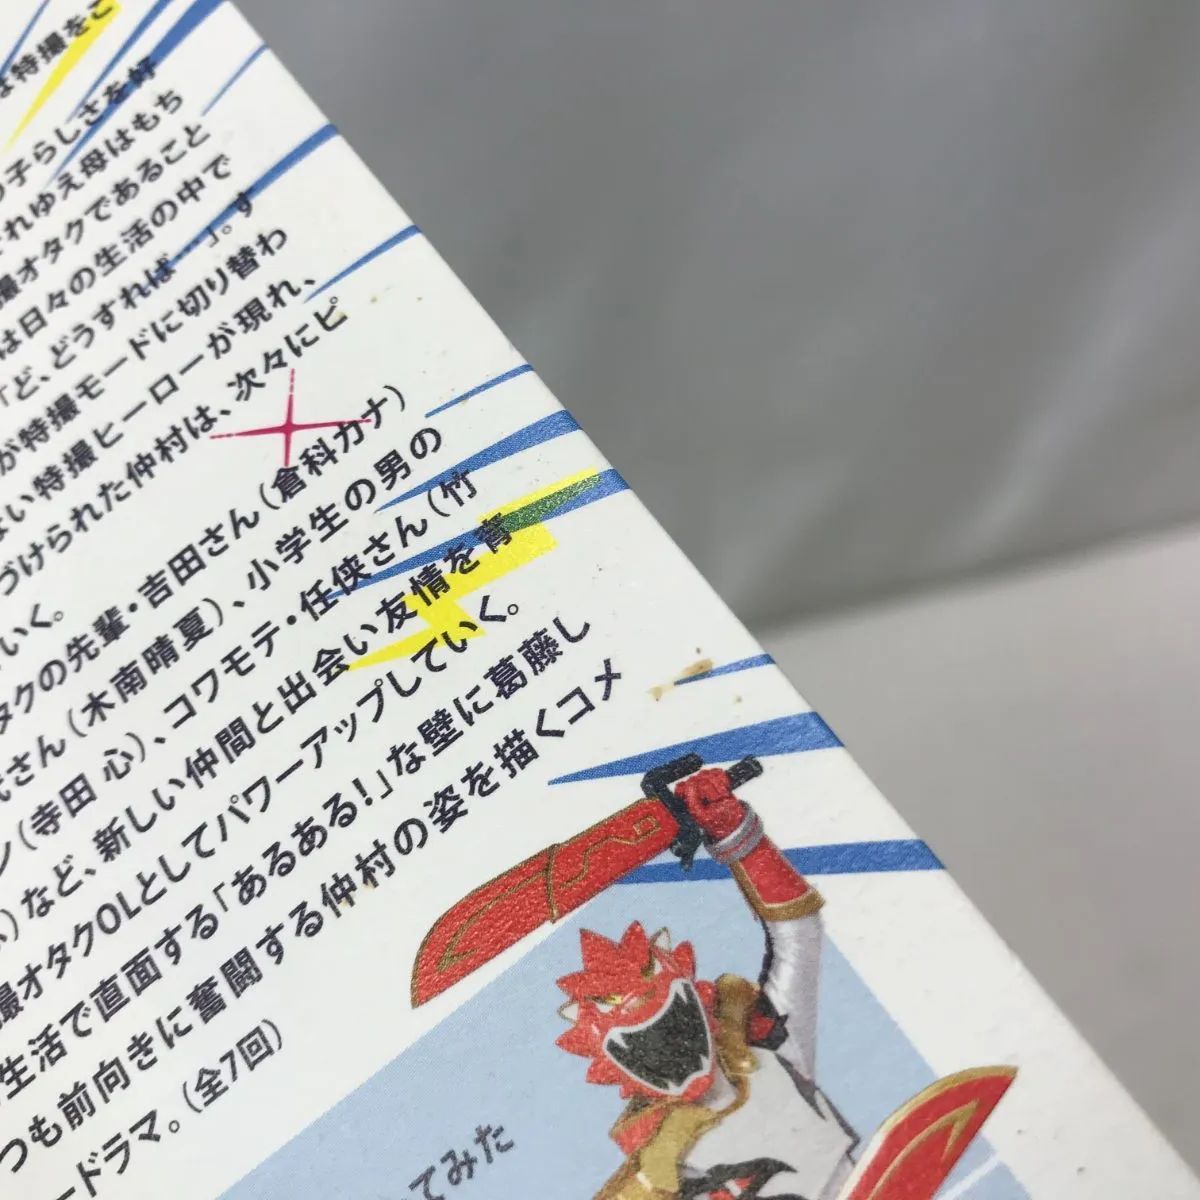 は特撮をこ
の子らしさを好
それゆえ母はもち
撮オタクであること
は日々の生活の中で
「ど、どうすれば…」。す
が特撮モードに切り替わ
ない特撮ヒーローが現れ、
づけられた仲村は、次々にピ
いく。
タクの先輩・吉田さん(倉科カナ)
代さん(木南晴夏)、小学生の男の
ン(寺田 心)、コワモテ・任侠さん(竹
)など、新しい仲間と出会い友情を育
撮オタクOLとしてパワーアップしていく。
生活で直面する「あるある!」な壁に葛藤し
つも前向きに奮闘する仲村の姿を描くコメ
ードラマ。(全7回)
てみた